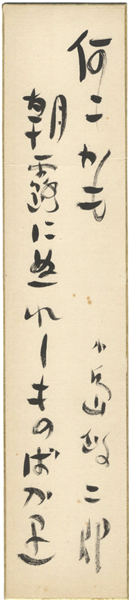 何こかも
朝露に濡れしものばかり
小島政二郎